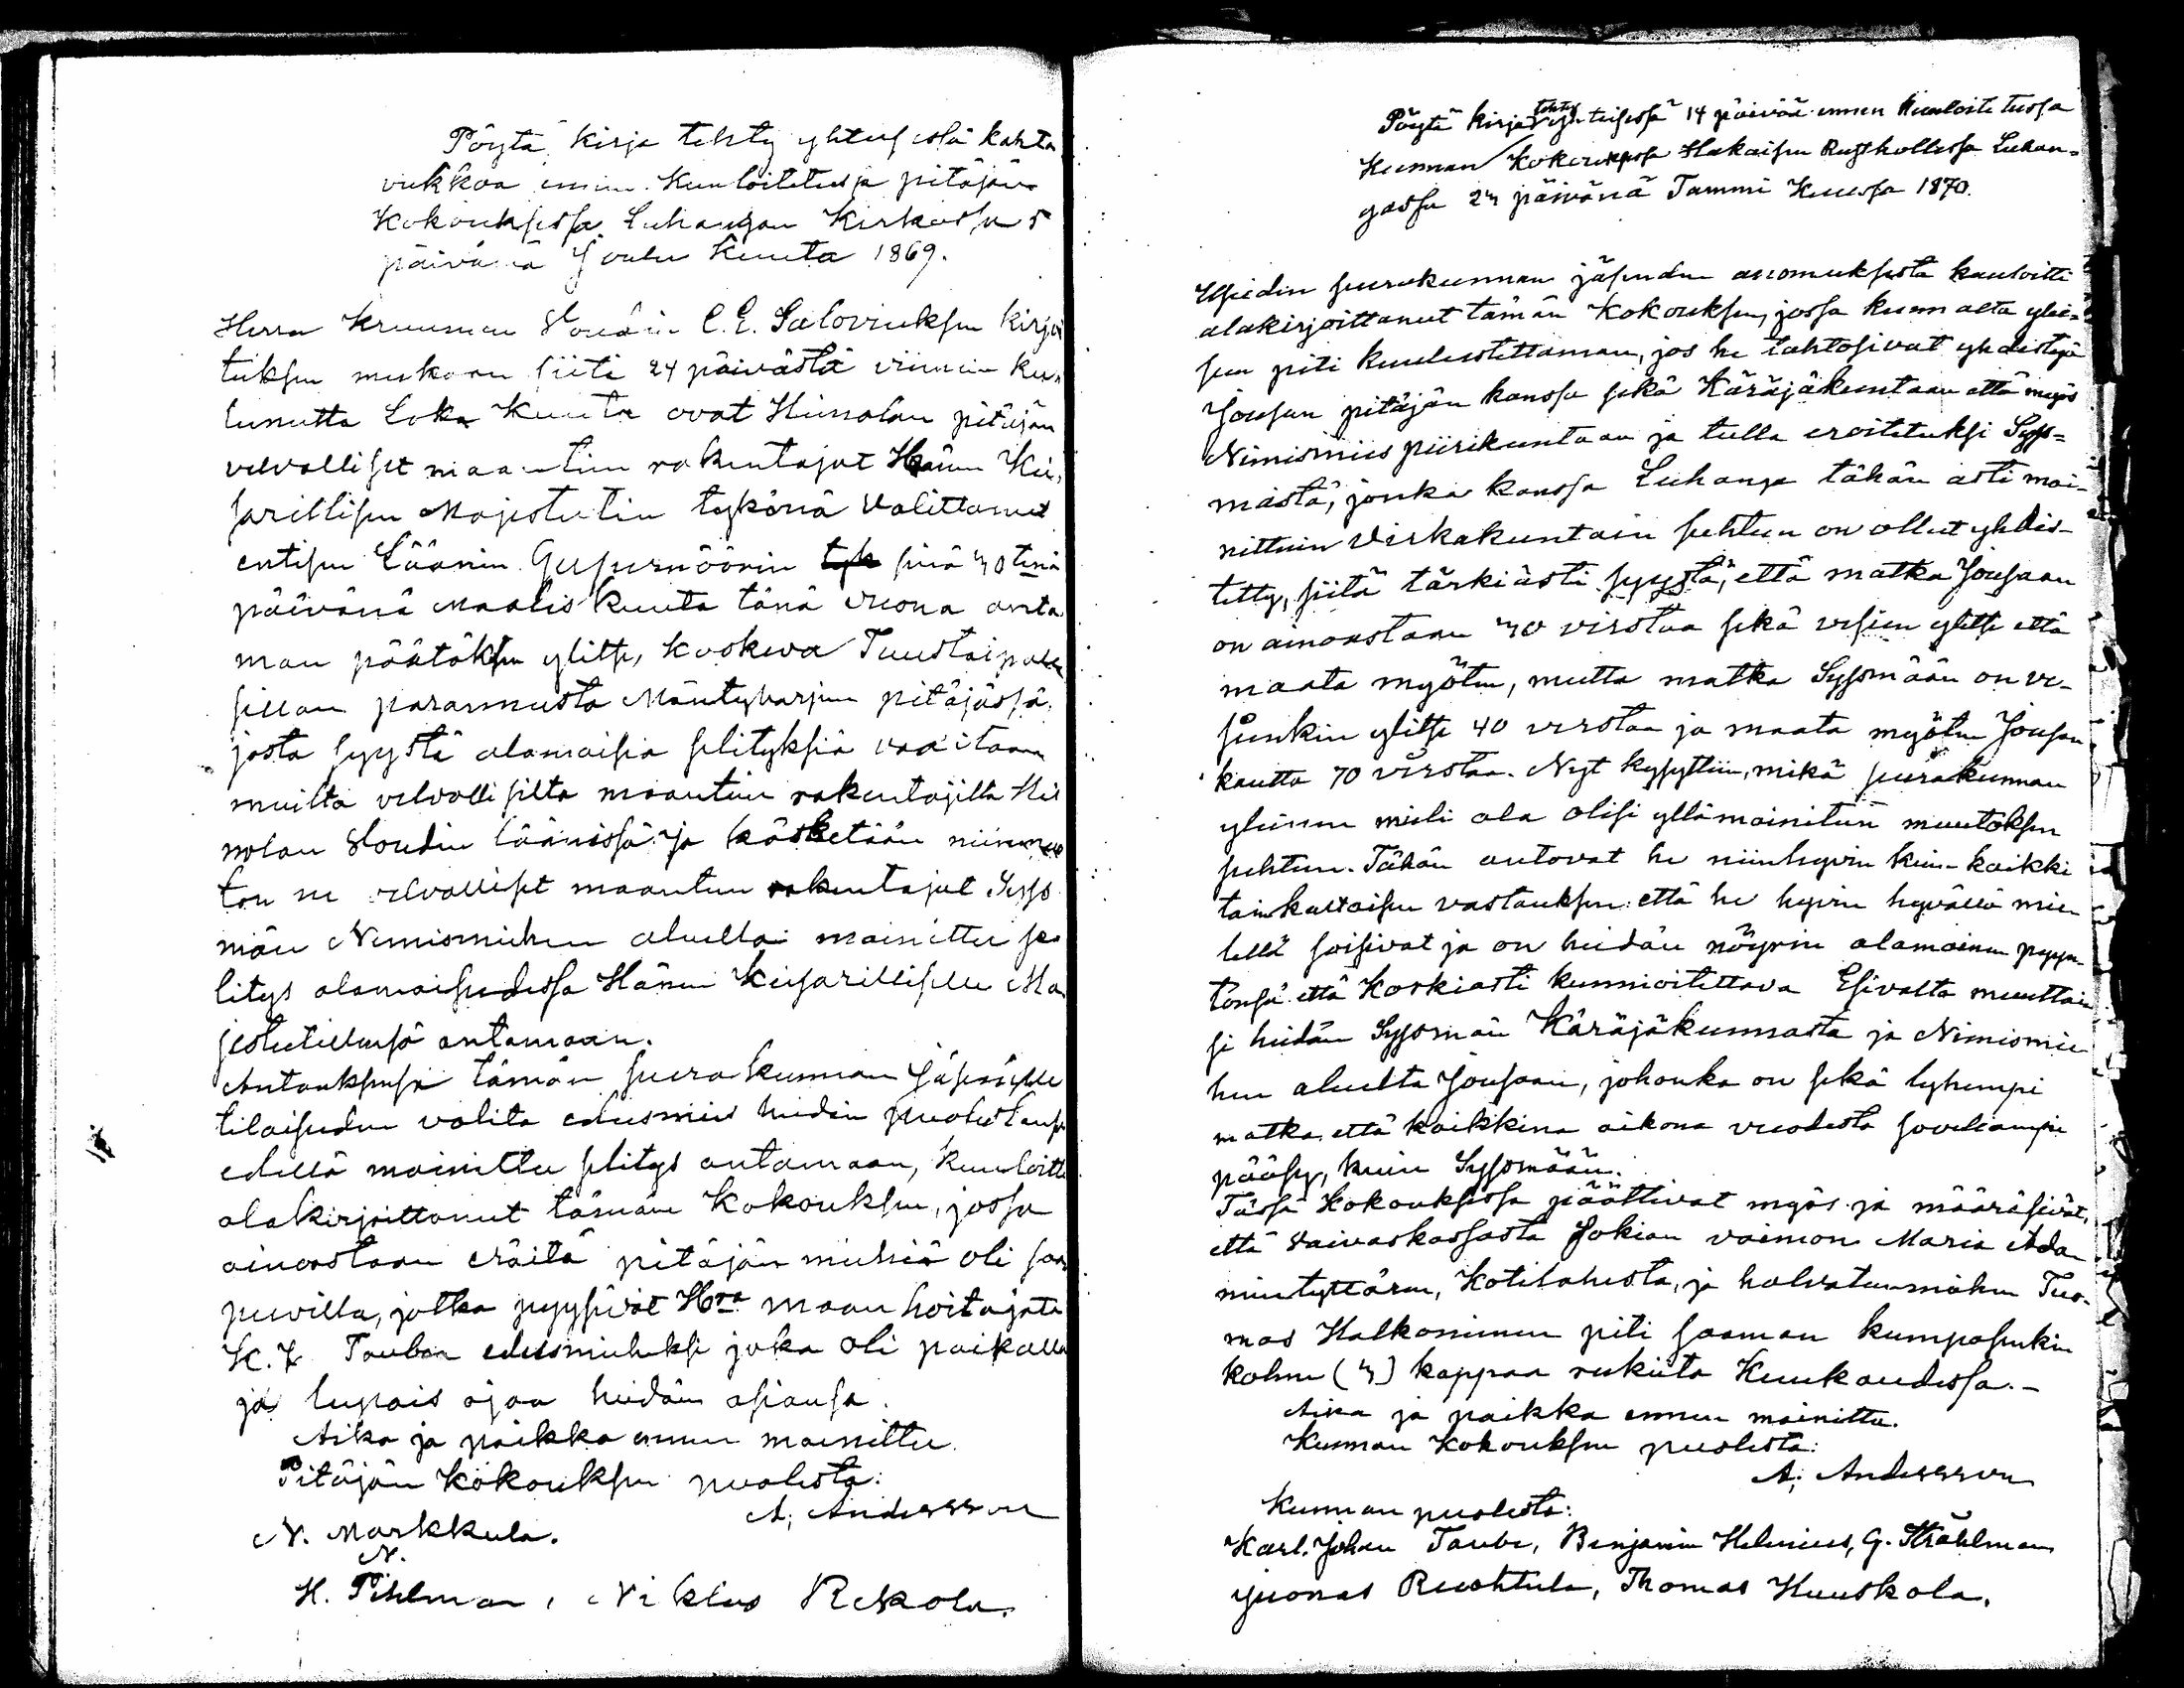 Pöytä kirja tehty yhteisessä kahta
viikkoa ennen Kuuloitetussa pitäjän
Kokouksessa Luhangan Kirkossa 5
päivänä Joulu Kuuta 1869.
Herra Kruunun Voudin C. E. Saloviuksen kirjoi
tuksen mukaan siitä 24 päivästä viimein ku-
lunutta Loka Kuuta ovat Heinolan pitäjän
velvolliset maantien rakentajat Hänen Kei-
sarillisen Majesteetin tykönä valittaneet
entisen Läänin Gupernöörin sinä 30 tenä
päivänä Maalis Kuuta tänä vuona anta
man päätöksen ylitse, koskeva Tuustaipalen
sillan parannusta Mäntyharjun pitäjässä
josta syystä alamaisia selityksiä vaaitaan
muilta velvollisilta maantien rakentajilta Hei
nolan Voudin läänissä ja käsketään niinmuo
ton ne velvolliset maantien rakentajat Syss
män Nimismiehen aluella mainittu se
litys alamaisudessa Hänen Keisarilliselle Ma
jesteetillensä antamaan.
Antauksensa tämän seurakunnan jäsenille
tilaisuden valita edusmies heidin puolestansa
edellä mainittu selitys antamaan, kuuloitti
alakirjoittanut tämän Kokouksen, jossa
ainoastaan eräitä pitäjän miehiä oli saa
puvilla, jotka pyysivät Hra maan hoitajata
K. J. Tauben edusmieheksi joka oli paikalla
ja lupais ajaa heidän asiansa.
Aika ja paikka ennen mainittu.
Pitäjän Kokouksen puolesta:
A. Andersson
N. Markkula.
N.
H. Pihlman, Niklas Rekola.
Pöytä kirja tehty yhteisessä 14 päivää ennen Kuuloitetussa
Kunnan Kokouksessa Hakaisen Rusthollissa Luhan-
gassa 23 päivänä Tammi Kuussa 1870.
Usiedin seurakunnan jäsenden anomuksesta kuuloitti
alakirjoittanut tämän Kokouksen, jossa kunnalta ylei-
sen piti kuulustettaman, jos he tahtosivat yhdistyä
Jousan pitäjän kanssa sekä Käräjäkuntaan että myös
Nimismies piirikuntaan ja tulla eroitetuksi Syss-
mästä, jonka kanssa Luhanga tähän asti mai-
nittuin Virkakuntain suhteen on ollut yhdis-
tetty, siitä tärkiästi syystä, että matka Jousaan
on ainoastaan 30 virstaa sekä vesien ylitse että
maata myöten, mutta matka Syssmään on ve-
sienkin ylitse 40 virstaa ja maata myöten Jousan
kautta 70 virstaa. Nyt kysyttiin, mikä seurakunnan
yleinen mieli ala olisi yllämainitun muutoksen
suhteen. Tähän antovat he niinhyvin kuin kaikki
tainkaltaisen vastauksen että he hyvin hyvällä mie
lellä soisivat ja on heidän nöyrin alamainen pyyn-
tönsä että Korkiasti kunnioitettava Esivalta muuttai
si heidän Syssmän Käräjäkunnasta ja Nimismie
hen aluelta Jousaan, johonka on sekä lyhempi
matka että kaikkina aikona vuodesta soveliampi
pääsy, kuin Syssmään.
Tässä Kokouksessa päättivät myös ja määräsivät,
että Vaivaskassasta Jokian vaimon Maria Ada-
mintyttären, Kotilahesta, ja halvatunmiehen Tuo-
mas Halkonimen piti saaman kumpasenkin
kolme (3) kappaa rukiita Kuukaudessa. -
Aika ja paikka ennen mainittu.
Kunnan Kokouksen puolesta:
A. Andersson
Kunnan puolesta:
Karl. Johan Taube, Benjamin Helenius, G. Ståhlman
Juonas Ruohtula, Thomas Huuskola.